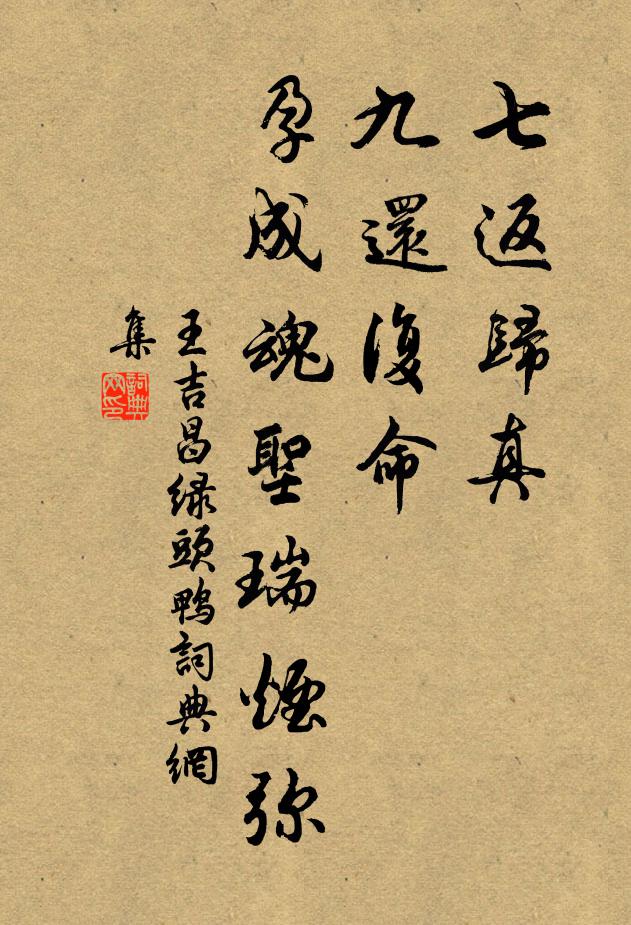 七返歸真
九還復命
孕成魂聖瑞煙弥
王吉昌綠頭鴨詞典網
集
詞典
网印